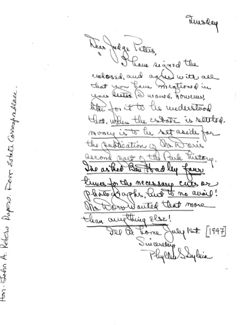 Tuesday
Dear Judge Peters,
I have signed the
enclosed, and agree with all
that you have mentioned in
your letter. I would, however,
like for it to be understood
that when the estate is settled,
money is to be set aside for
the publication of Mr. Dorr's
second part of the Park history.
I've asked Ben Hadley four
times for the necessary cuts or
photographs, but to no avail!
Mr. Dorr wanted that more
than anything else!
I'll be home July 1st [1947]
Sincerely
Phyllis Sylvia
Hon. John A. Peters Papers. Dorr estate Correspondence.